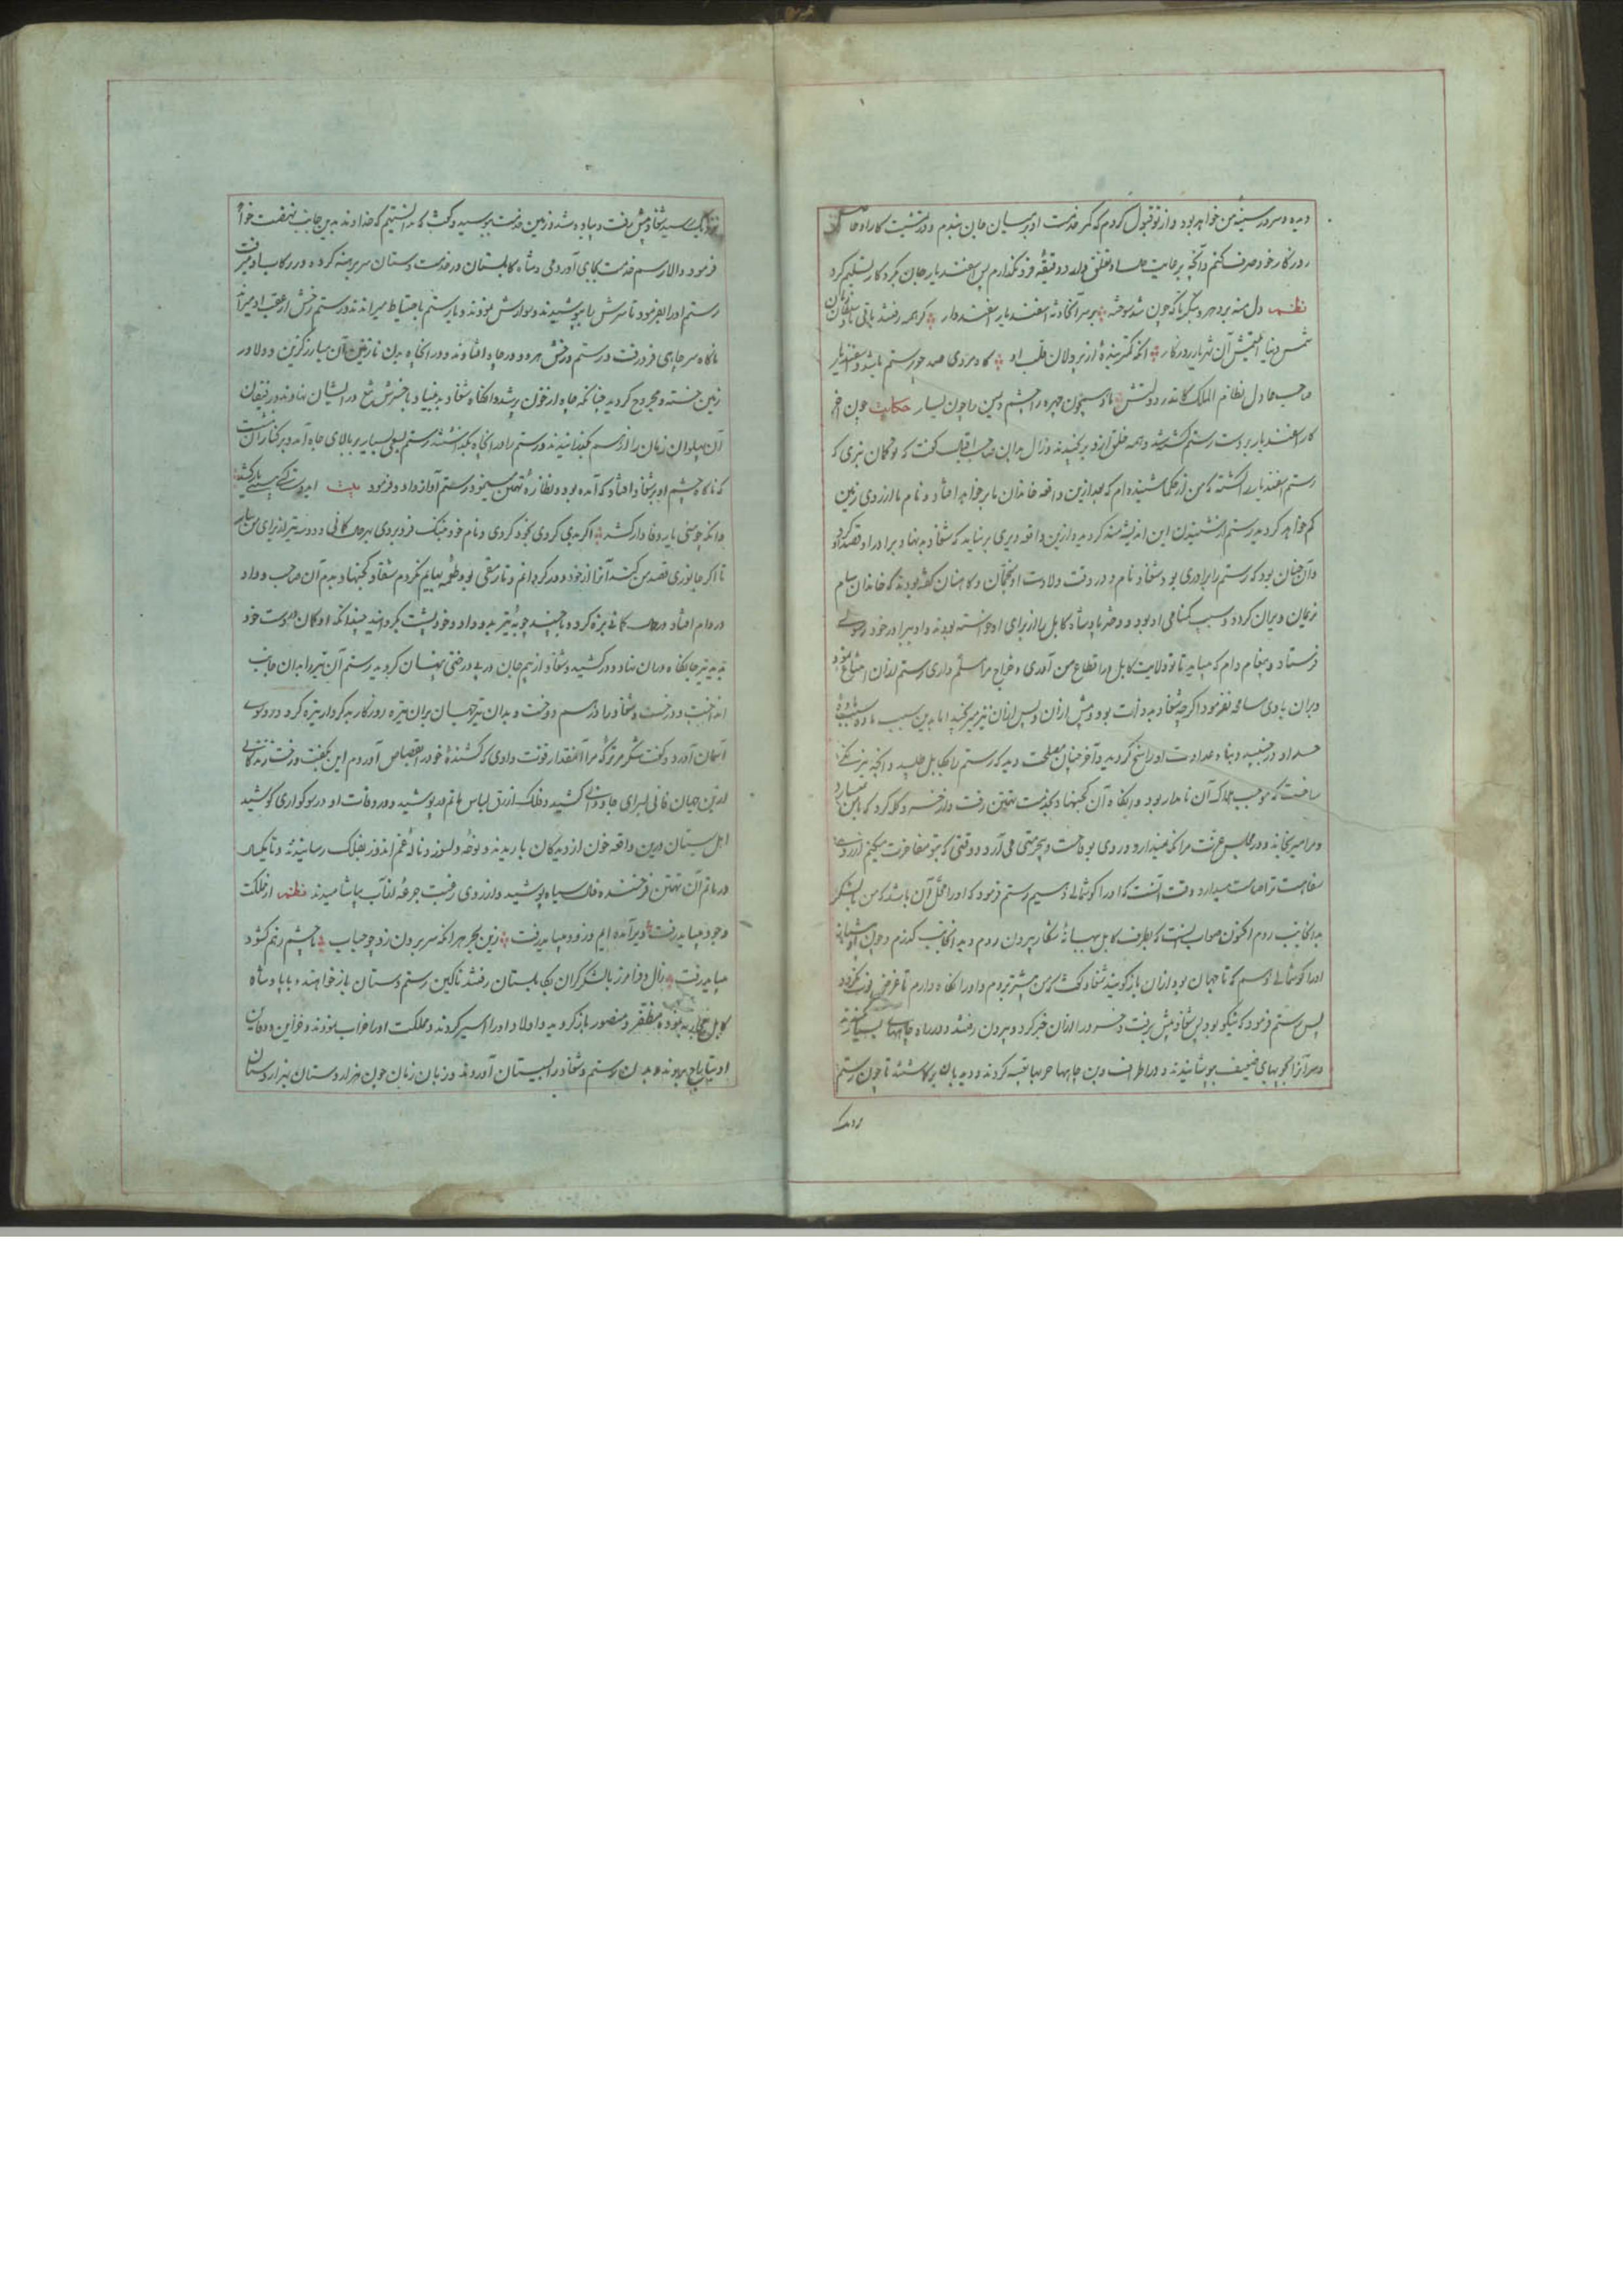 دیده و سرور سینهٔ من خواهد بود و از تو قبول کردم که کمر خدمت او بر میان جان بندم و در تمشیت کار او جا
روزکار خود صرف کنم و آنچه برعایت تعلق دارد دقیقه فرو نگذارم پس اسفندیار جان بکردکار تسلیم کرد
نظم دل منه بر دهر و بنگر تا که چون شد سوخته بر سر آنحادثه اسفندیار اسفندوار کر همه رفتند باقی باد
شمس دنیا التمش آن شهریار روزکار آنکه کمتر بندهٔ از پردلان قلب او کاه مردی صد چو رستم باشد و اسفندیار
صاحب عادل نظام الملک کاندر دولتش باد چون چهره چشم و سین را چون یسار حکایت چون آخر
کار اسفندیار بر دست رستم کشته شد و همه خلق ازو برنجیدند و زال بدان صاحب اقبال گفت که تو کمان نبری که
رستم اسفندیار را کشته که من از حکما شنیده ام که بعد ازین واقعه خاندان ما برخواهد افتاد و نام ما از روی زمین
کم خواهد کردید رستم از شنیدن این اندیشه مند کردید و ازین واقعه دیری بر نیاید که شغاد بد نهاد برادر او قصد او کرد
و آن چنان بود که رستم را برادری بود شغاد نام و در وقت ولادت او منجمان و کاهنان گفته بودند که خاندان سام
نریمان ویران کردد و سبب کمنامی او بود و دختر پادشاه کابل را از برای او خواسته بودند و او برادر خود رسولی
فرستاد و پیغام دادم که میباید تا تو ولایت کابل در اقطاع من آوری و خراج مرا مسلم داری رستم ازان امتناع نمود
و بران با وی مسامحه نفرمود اکرچه شغاد بد ذات بود و پیش ازان و پس ازان نیز میرنجید اما بدین سبب ماده
حسد او در جنبید و بناء عداوت او راسخ کردید و آخر چنان مصلحت دید که رستم را بکابل طلبد و آنچه
ساخت که موجب هلاک آن نامدار بود و آنکاه آن کجنهاد بخدمت تهمتن رفت و از خسر و کله کرد که با من
و مرا میرنجاند و در مجلس عزت مرا نکه نمیدارد و در وی بوقاحت و بیحرمتی می آرد و وقتی که بتو مفاخرت میکنم از روی
سفاهت ترا دشنام میدارد وقت آنست که او را کوشمالی دهیم رستم فرمود که او را محل آن باشد که من با لشکر
بدانجانب روم اکنون صواب آنست که بطرف کابل ببهانهٔ شکار بیرون روم و بدانجانب کذرم و چون او
او را کوشمالی دهم که تا جهان بود ازان بازکویند شغاد کفت که من پیشتر بروم و او را نکاه دارم تا غرض فوت نکردد
پس رستم فرمود که نیکو بود پس شغاد پیش برفت و خسر را ازان خبر کرد و بیرون رفتند و در راه چاههای بسیار
و سر آنرا بچوبهای ضعیف بپوشانیدند و در اطراف و بن چاهها حربها تعبیه کردند و دیده بان برکماشتند تا چون رستم
نزدیک
نزدیک رسید شغاد پیش رفت و پیاده شد و زمین خدمت ببوسید و کفت که ندانستیم که خداوند بدین جانب نهضت خواهد
فرمود والا رسم خدمت بجای آوردمی و شاه کابلستان در خدمت دستان سر برهنه کرده و در رکاب او میرفت
رستم او را بفرمود تا سرش باز پوشیدند و سوارش نمودند و با رستم باحتیاط میراندند و رستم رخش از عقب او میراند
ناکاه سر چاهی فرو رفت و رستم و رخش هر دو در چاه افتادند و در آنچاه بدن نازنین آن مبارز کزین و دلاور
زمین خسته و مجروح کردید چنانکه چاه از خون پر شد و آنکاه شغاد بدبنیاد با خسرش تیغ در ایشان نهادند و رفیقان
آن پهلوان زمان را از هم بکذرانیدند و رستم را در آنچاه بکذاشتند رستم بسعی بسیار بر بالای چاه آمد و بر کنار آن نشست
که ناکاه چشم او بر شغاد افتاد که آمده بود و نظاره تهمتن مینمود رستم آواز داد و فرمود بیت
وانکه چو منی یار وفادار کشد اکر بدی کردی بخود کردی و نام خود بننک فرو بردی بهر حال کمانی و دو سه تیر از برای من بیار
تا اکر جانوری قصد من کند آنرا از خود دور کردانم و تا رمقی بود طعمه بهایم نکردم شغاد کجنهاد بدم آن صاحب و داد
در دام افتاد و در حال کمانی بزه کرد و با چند چوبهٔ تیر بدو داد و خود پشت بکردانید چندانکه او کمان در دست خود
بدید تیر جانکاه دران نهاد و درکشید و شغاد از بیم جان در پس درختی پنهان کردید رستم آن تیر را بدان جانب
انداخت و درخت و شغاد را در هم دوخت و بدان تیر جهان بران تیره روزکار بدکردار تیره کرد و روی
آسمان آورد و کفت شکر مر ترا که مرا آنمقدار قوت دادی که کشندهٔ خود را بقصاص آوردم این بکفت و رخت زندکانی
ازین جهان فانی بسرای جاودانی کشید و فلک ازرق لباس ماتم در پوشید و در وفات او در سوکواری کوشید
اهل سیستان درین واقعه خون از دیدکان باریدند و نوحه و لسوز و نالهٔ غم اندوز بفلاک رسانیدند و تا یکسال
در ماتم آن تهمتن فرخنده فال سیاه پوشیدند و از روی رغبت جرعهٔ از آب نیاشامیدند نظم از مملکت
وجود میباید رفت دیر آمده ایم و زود میباید رفت زین بحر هر انکه سر برون زد چو حباب تا چشم زنم کشود
میباید رفت زال و فرامرز با لشکر کران بکابلستان رفتند تا کین رستم دستان بازخواهند و با پادشاه
کابل محاربه نموده مظفر و منصور بازکردید و اولاد او را اسیر کردند و مملکت او را خراب نمودند و خزاین و دفاین
او بتاراج بردند و بدن رستم و شغاد را بسیستان آوردند و زبان زمان چون هزاردستان بهزار دستان